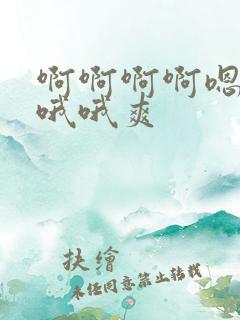 啊啊啊啊嗯
哦哦爽
扶繪
未经同意禁止转载